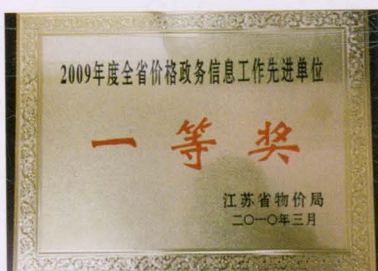 2009年度全省价格政务信息工作先进单位
一等奖
江苏省物价局
二〇一〇年三月